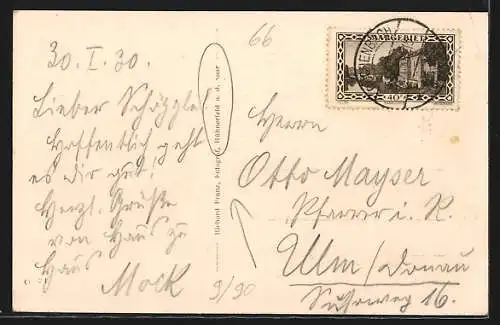 66
30. I. 30.
Lieber
Hoffentlich geht
es dir gut!
Herzl. Grüße
von Haus zu
Haus
Mock
9/90
Richard Franz, Fotograf, Hühnerfeld a. d. Saar
SAARGEBIET
40
Herrn
Otto Mayser
Pfarrer i. R.
Ulm/Donau
16.